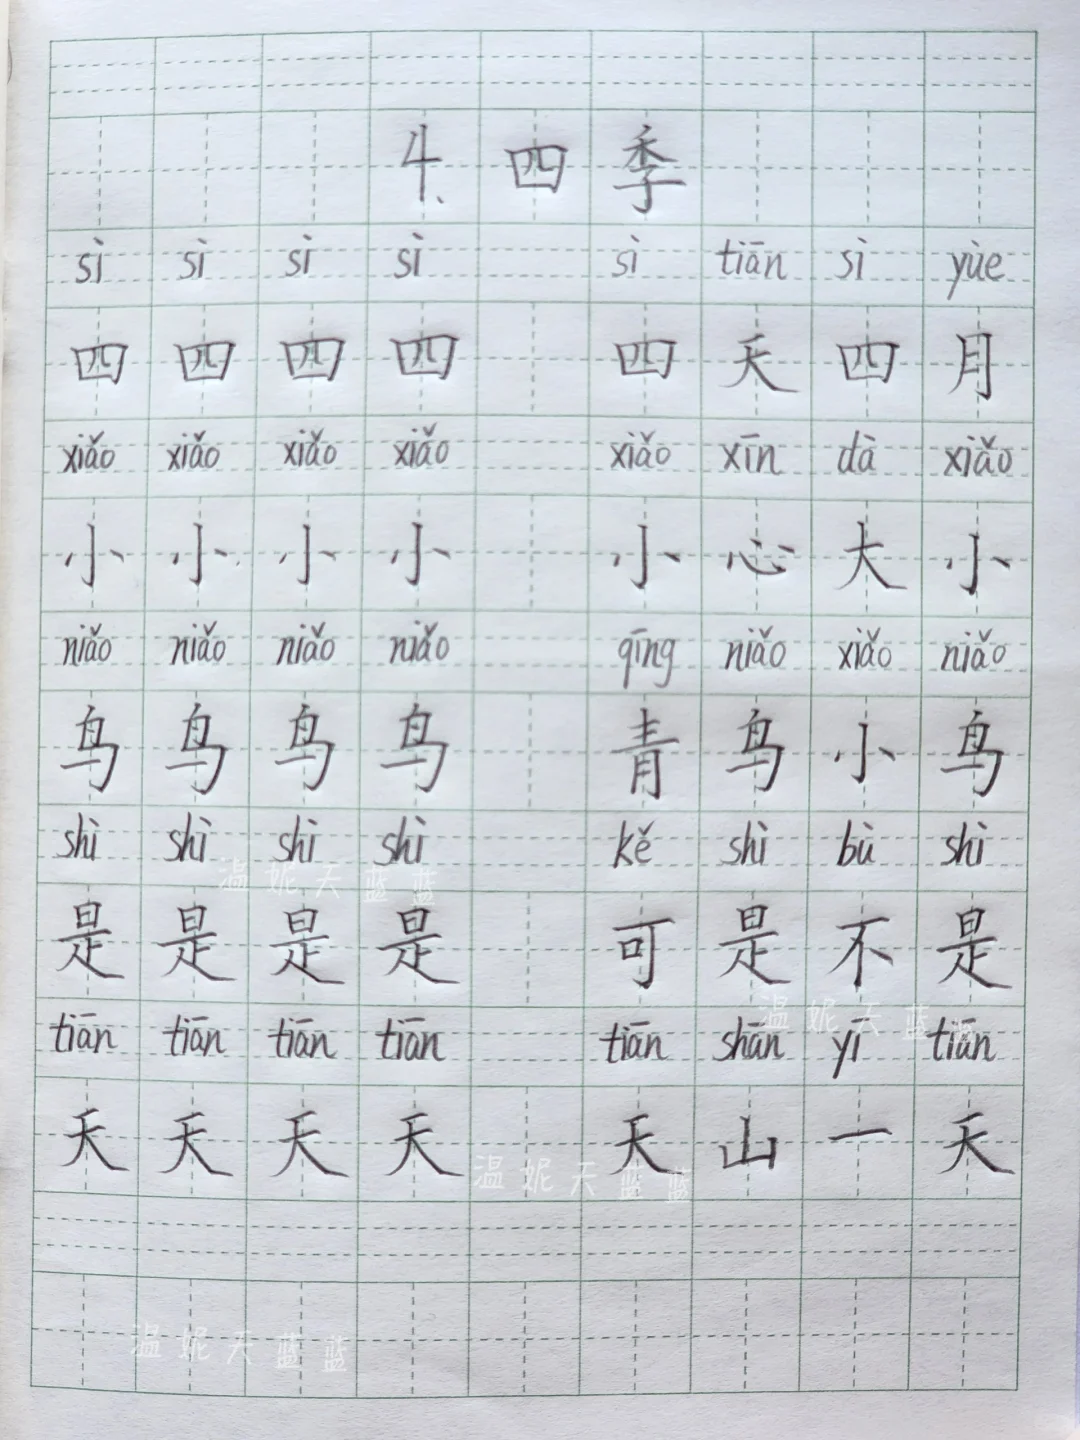 4. 四季
sì sì sì sì sì tiān sì yuè
四 四 四 四 四 天 四 月
xiǎo xiǎo xiǎo xiǎo xiǎo xīn dà xiǎo
小 小 小 小 小 心 大 小
niǎo niǎo niǎo niǎo qīng niǎo xiǎo niǎo
鸟 鸟 鸟 鸟 青 鸟 小 鸟
shì shì shì shì kě shì bù shì
温妮天蓝蓝
是 是 是 是 可 是 不 是
温妮天蓝蓝
tiān tiān tiān tiān tiān shān yī tiān
天 天 天 天 天 山 一 天
温妮天蓝蓝
温妮天蓝蓝